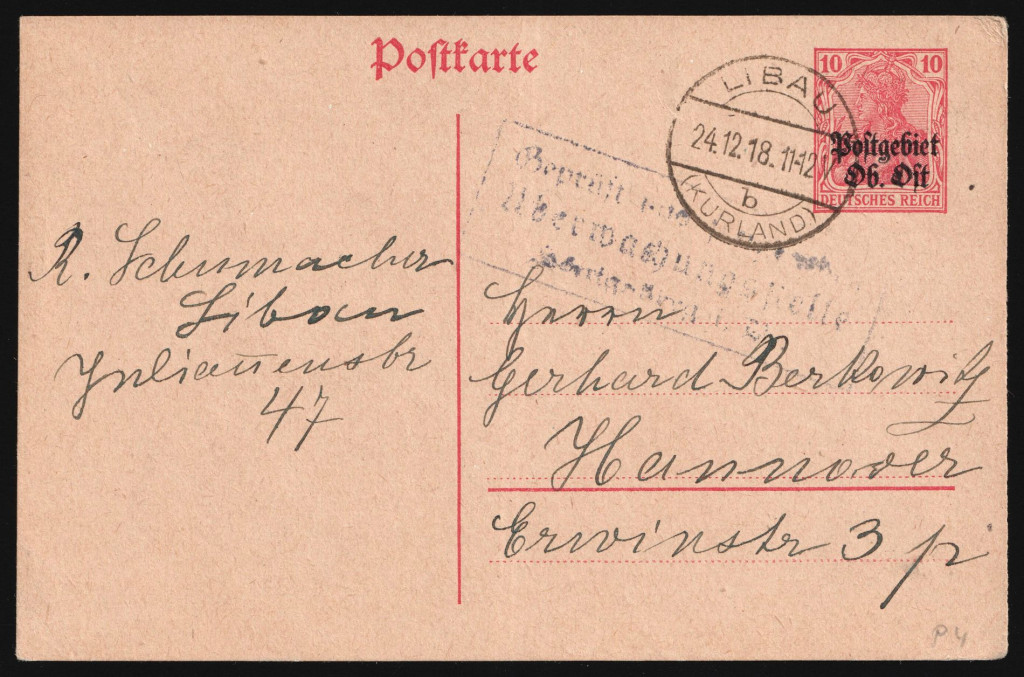 Postkarte
10 10
Postgebiet
Ob. Ost
DEUTSCHES REICH
LIBAU
24.12.18. 11-12
b
(KURLAND)
Geprüft
Überwachungsstelle
R. Schumacher
Libau
Juliannenstr
47
Herrn
Gerhard Berkowitz
Hannover
Erwinstr 3 p
P 4